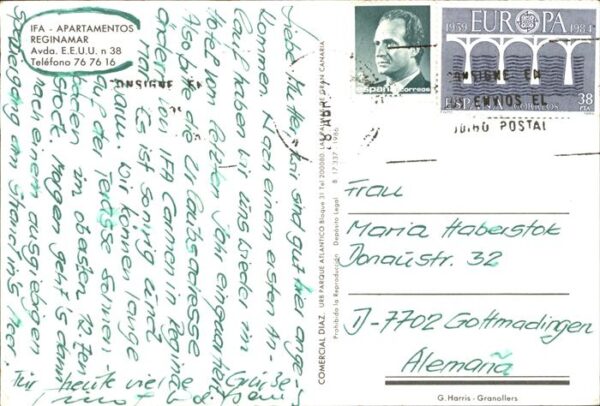 IFA - APARTAMENTOS
REGINAMAR
Avda. E.E.U.U. n 38
Teléfono 76 76 16
Liebe Mutter, sind gut hier ange-
kommen. Nach einem ersten An-
lauf haben wir uns wieder im
Hotel vom letzten Jahr einquartiert.
Also bitte die Urlaubsadresse
ändern von IFA Carmen in Regina-
mar. Es ist sonnig und
warm. Wir können lange
auf der Terasse
im obersten 12 ten
Stock. Morgen geht's dann
nach einem ausgiebigen
Spaziergang am Strand in's Meer.
Für heute viele Grüße
1959 EUROPA 1984
españa correos
ESPAÑA 38
CONSIGNE EN
CONSIGNE EN
ENVIOS EL
CODIGO POSTAL
COMERCIAL DIAZ. URB PARQUE ATLANTICO Bloque 31 Tel 200080. LAS PALMAS DE GRAN CANARIA
Prohibida la Reproducción Depósito Legal B 17.337 - 1986
Frau
Maria Haberstok
Donaustr. 32
D-7702 Gottmadingen
Alemaña
G. Harris - Granollers